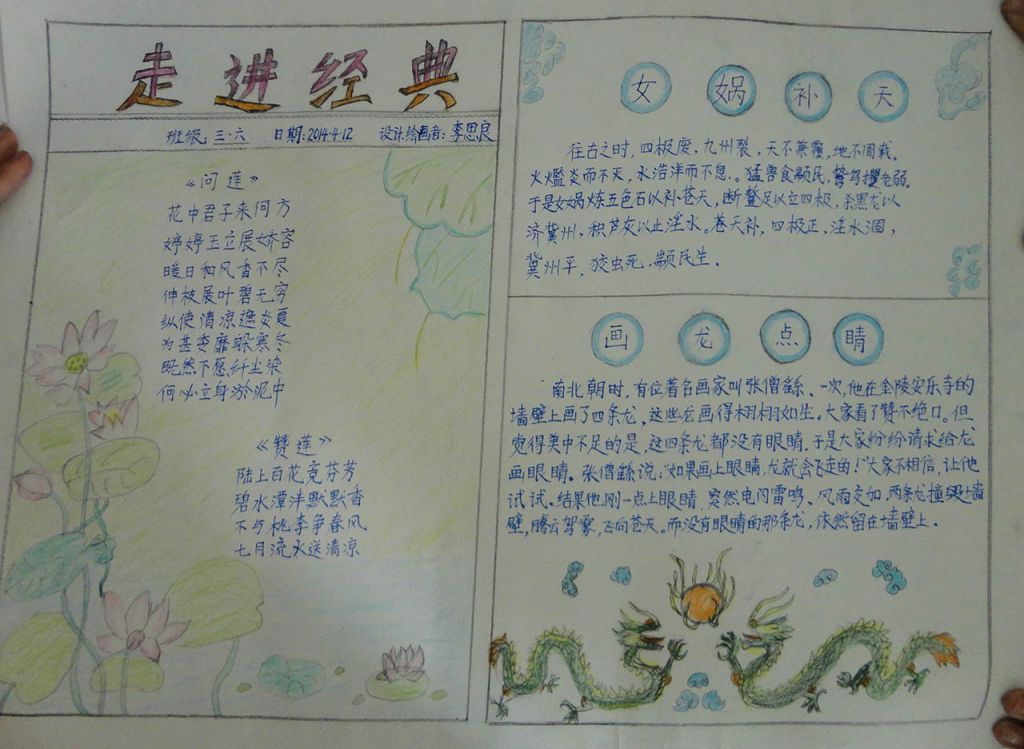 走进经典
班级: 三·六 日期: 2014·4·12 设计绘画者: 李思良
《问莲》
花中君子来何方
婷婷玉立展娇容
暖日和风香不尽
伸枝展叶碧无穷
纵使清凉遮炎夏
为甚委靡躲寒冬
既然不愿纤尘染
何必立身淤泥中
《赞莲》
陆上百花竞芬芳
碧水潭泮默默香
不与桃李争春风
七月流水送清凉
女娲补天
往古之时,四极废,九州裂,天不兼覆,地不周载。
火爁炎而不灭,水浩洋而不息。猛兽食颛民,鸷鸟攫老弱。
于是女娲炼五色石以补苍天,断鳌足以立四极,杀黑龙以
济冀州,积芦灰以止淫水。苍天补,四极正,淫水涸,
冀州平,狡虫死,颛民生。
画龙点睛
南北朝时,有位著名画家叫张僧繇。一次,他在金陵安乐寺的
墙壁上画了四条龙,这些龙画得栩栩如生。大家看了赞不绝口。但
觉得美中不足的是,这四条龙都没有眼睛。于是大家纷纷请求给龙
画眼睛。张僧繇说:“如果画上眼睛,龙就会飞走的!”大家不相信,让他
试试。结果他刚一点上眼睛,突然电闪雷鸣,风雨交加,两条龙撞毁墙
壁,腾云驾雾,飞向苍天。而没有眼睛的那条龙,依然留在墙壁上.